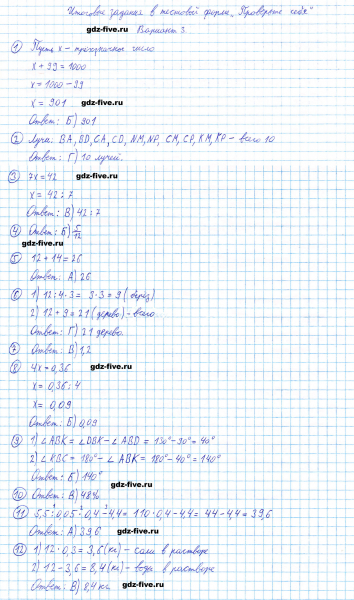 Итоговые задания в тестовой форме „Проверьте себя"
gdz-five.ru Вариант 3.
1) Пусть x - трёхзначное число
x + 99 = 1000
x = 1000 - 99
x = 901
Ответ: Б) 901 gdz-five.ru
2) Лучи: BA, BD, CA, CD, NM, NP, CM, CP, KM, KP - всего 10
Ответ: Г) 10 лучей.
3) 7x = 42 gdz-five.ru
x = 42 : 7
Ответ: В) 42 : 7
4) Ответ: Б) 5/12
gdz-five.ru
5) 12 + 14 = 26
Ответ: А) 26
6) 1) 12 : 4 · 3 = 3 · 3 = 9 (берёз)
2) 12 + 9 = 21 (дерево) - всего.
gdz-five.ru
Ответ: Г) 21 дерево.
7) Ответ: В) 1,2
8) 4x = 0,36 gdz-five.ru
x = 0,36 : 4
x = 0,09
Ответ: Б) 0,09 gdz-five.ru
9) 1) ∠ABK = ∠DBK - ∠ABD = 130° - 90° = 40°
2) ∠KBC = 180° - ∠ABK = 180° - 40° = 140°
Ответ: Б) 140° gdz-five.ru
10) Ответ: В) 48%
gdz-five.ru
11) 5,5 : 0,05 · 0,4 - 4,4 = 110 · 0,4 - 4,4 = 44 - 4,4 = 39,6
Ответ: А) 39,6 gdz-five.ru
12) 1) 12 · 0,3 = 3,6 (кг) - соли в растворе
2) 12 - 3,6 = 8,4 (кг) - воды в растворе
Ответ: В) 8,4 кг gdz-five.ru